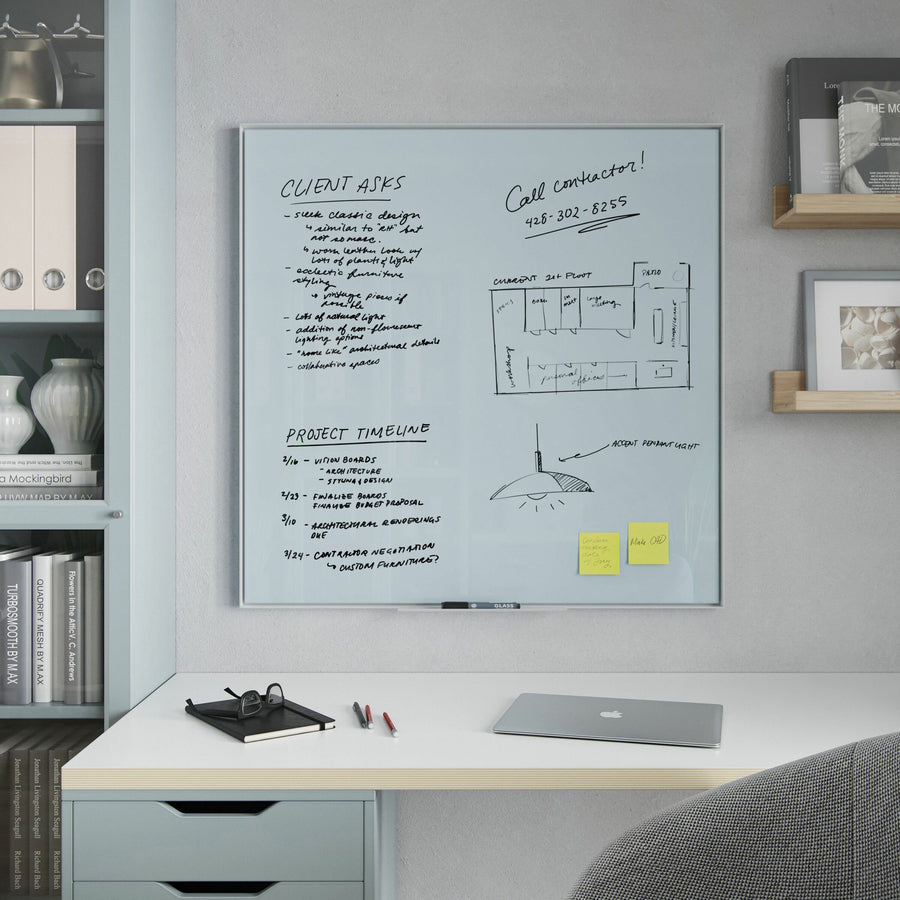 CLIENT ASKS
- sleek classic design
↳ similar to "RH" but
not so masc.
↳ worn leather look w/
lots of plants & light
- acclectic furniture
styling
↳ vintage pieces if
possible
- Lots of natural light
- addition of non-flourescent
lighting options
- "home like" architectural details
- collaborative spaces
Call contractor!
428-302-8255
CURRENT 1st FLOOR
PATIO
workshop
personal offices
ACCENT PENDANT LIGHT
PROJECT TIMELINE
2/16 - VISION BOARDS
- ARCHITECTURE
- STYLING & DESIGN
2/23 - FINALIZE BOARDS
FINALIZE BUDGET PROPOSAL
3/10 - ARCHITECTURAL RENDERINGS
DUE
3/24 - CONTRACTOR NEGOTIATION
↳ CUSTOM FURNITURE?
Make
GLASS
The Lion, The Witch and the
a Mockingbird
UVW MAP BY M.AX
TURBOSMOOTH BY M.AX
QUADRIFY MESH BY M.AX
Flowers in the Attic V. C. Andrews
Jonathan Livingston Seagull Richard Bach
Jonathan Livingston Seagull Richard Bach
Jonathan Livingston Seagull Richard Bach
Lore
THE MO